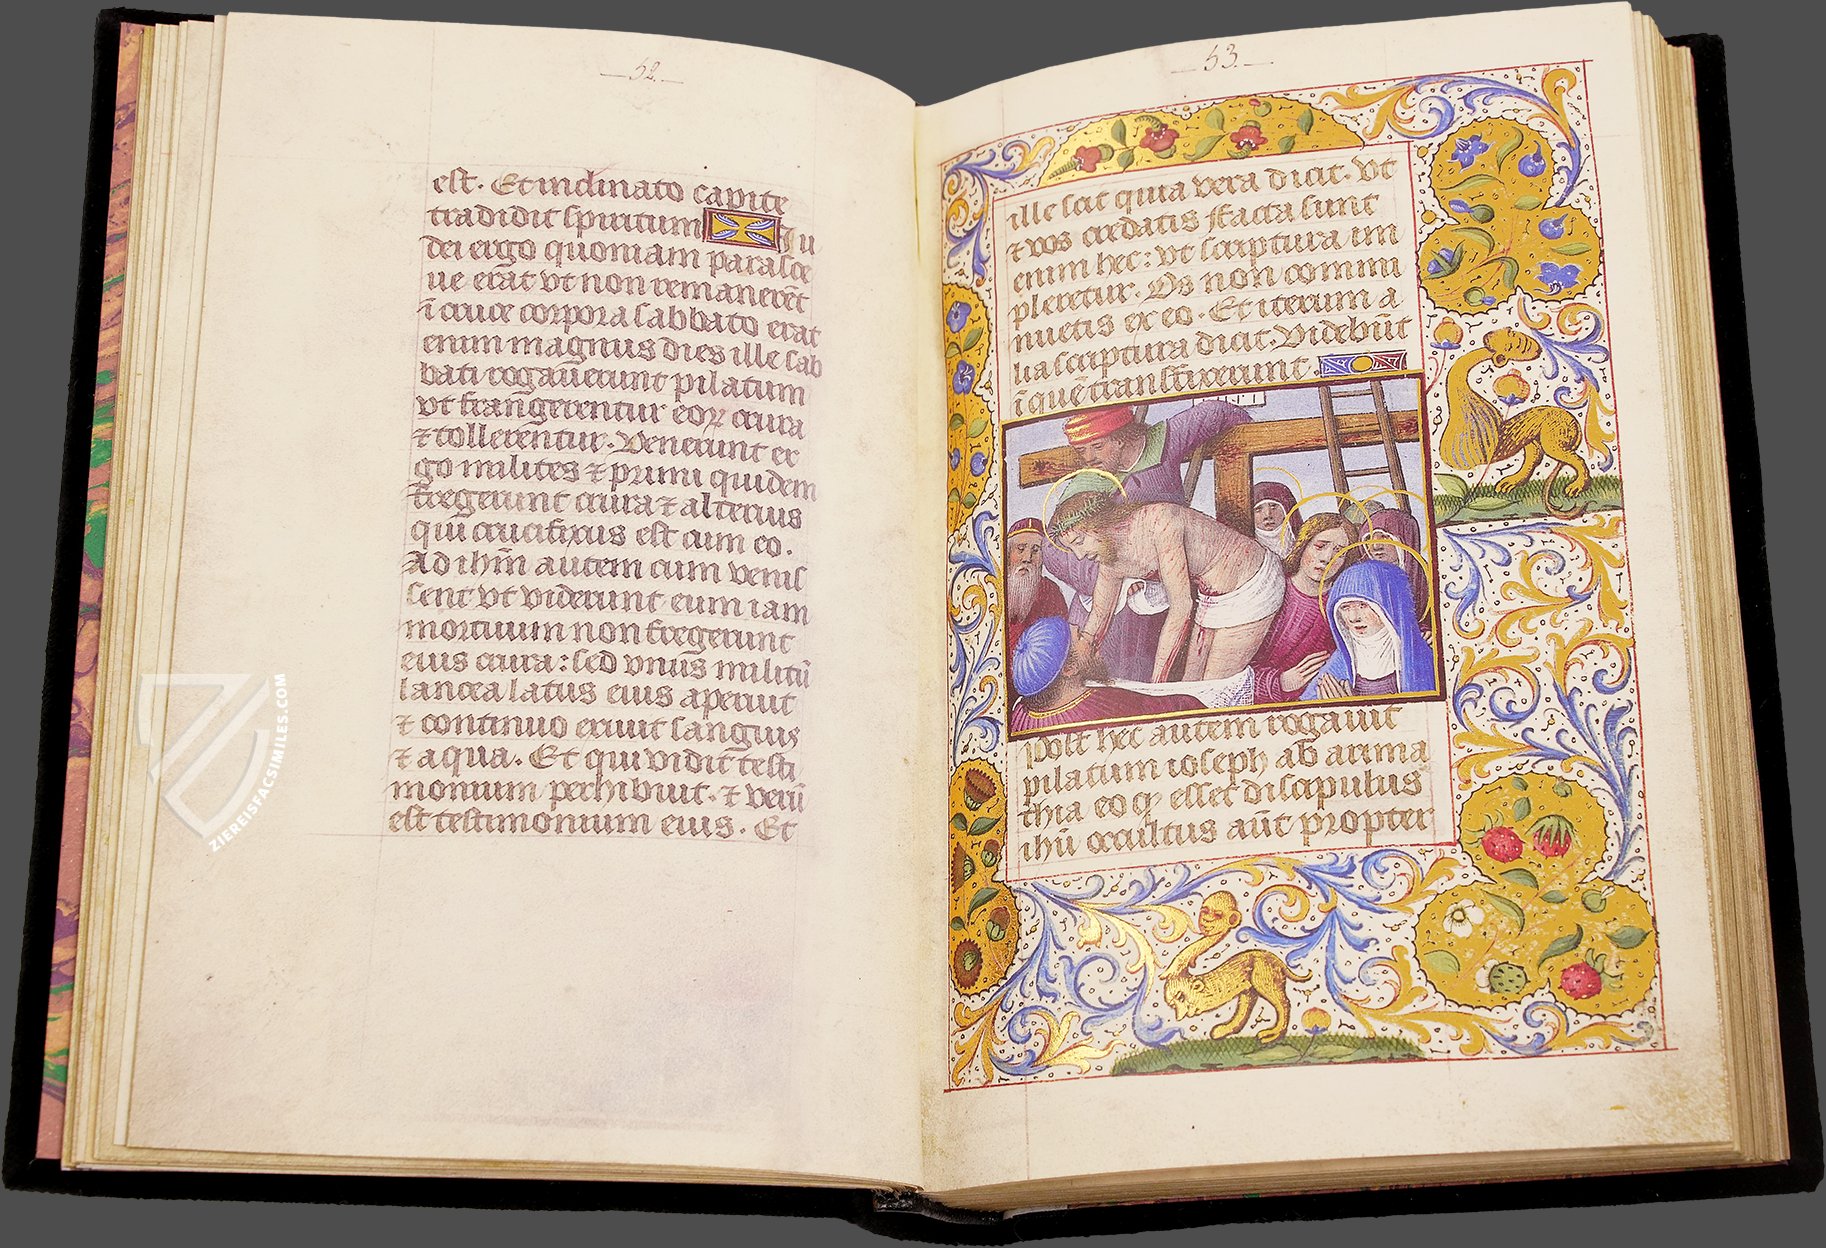 52.
est. Et inclinato capite
tradidit spiritum Iu
dei ergo quoniam parasce
ue erāt vt non remanerēt
ī cruce corpora sabbato erat
enim magnus dies ille sab
bati rogaūerunt pilatum
vt frangerentur eoꝝ crura
⁊ tollerentur. Venerunt er
go milites ⁊ primi quidem
fregerunt crura ⁊ alterius
qui crucifixus est cum eo.
Ad ihm̄ autem cum venis
sent vt viderunt eum iam
mortuum non fregerunt
eius crura: sed vnus militū
lancea latus eius aperuit
⁊ continuo exiuit sanguis
⁊ aqua. Et qui vidit testi
monium perhibuit. ⁊ verū
est testimonium eius. Et
53.
ille scit quia vera dicit. Vt
⁊ vos credatis ffacta sunt
enim hec: vt scriptura im
pleretur. Os non commi
nuetis ex eo. Et iterum a
lia scriptura dicit. Videbūt
ī quē transfixerunt.
post hec autem rogauit
pilatum ioseph ab arima
thia eo qͥ esset discipulus
ihū occultus aūt propter
ZIEREISFACSIMILES.COM